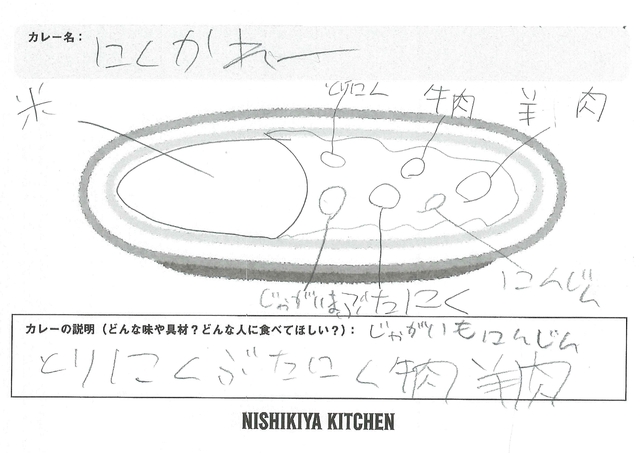 カレー名：
にくかれー
米
とりにく
牛肉
羊肉
じゃがいも
ぶたにく
にんじん
カレーの説明（どんな味や具材？どんな人に食べてほしい？）：
じゃがいも にんじん
とりにく ぶたにく 牛肉 羊肉
NISHIKIYA KITCHEN